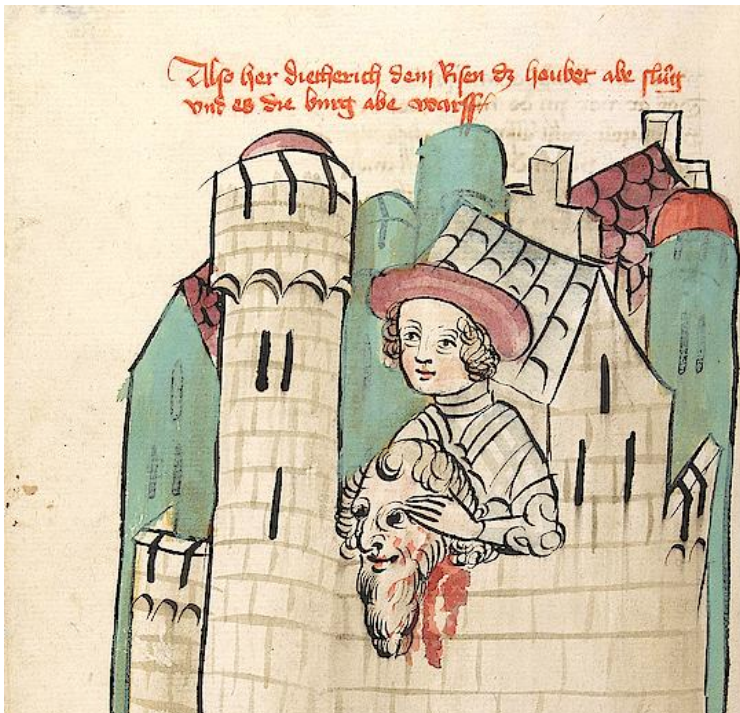 Also her dietherich dem Risen dz houbet abe slůg
vnd es die burg abe warff